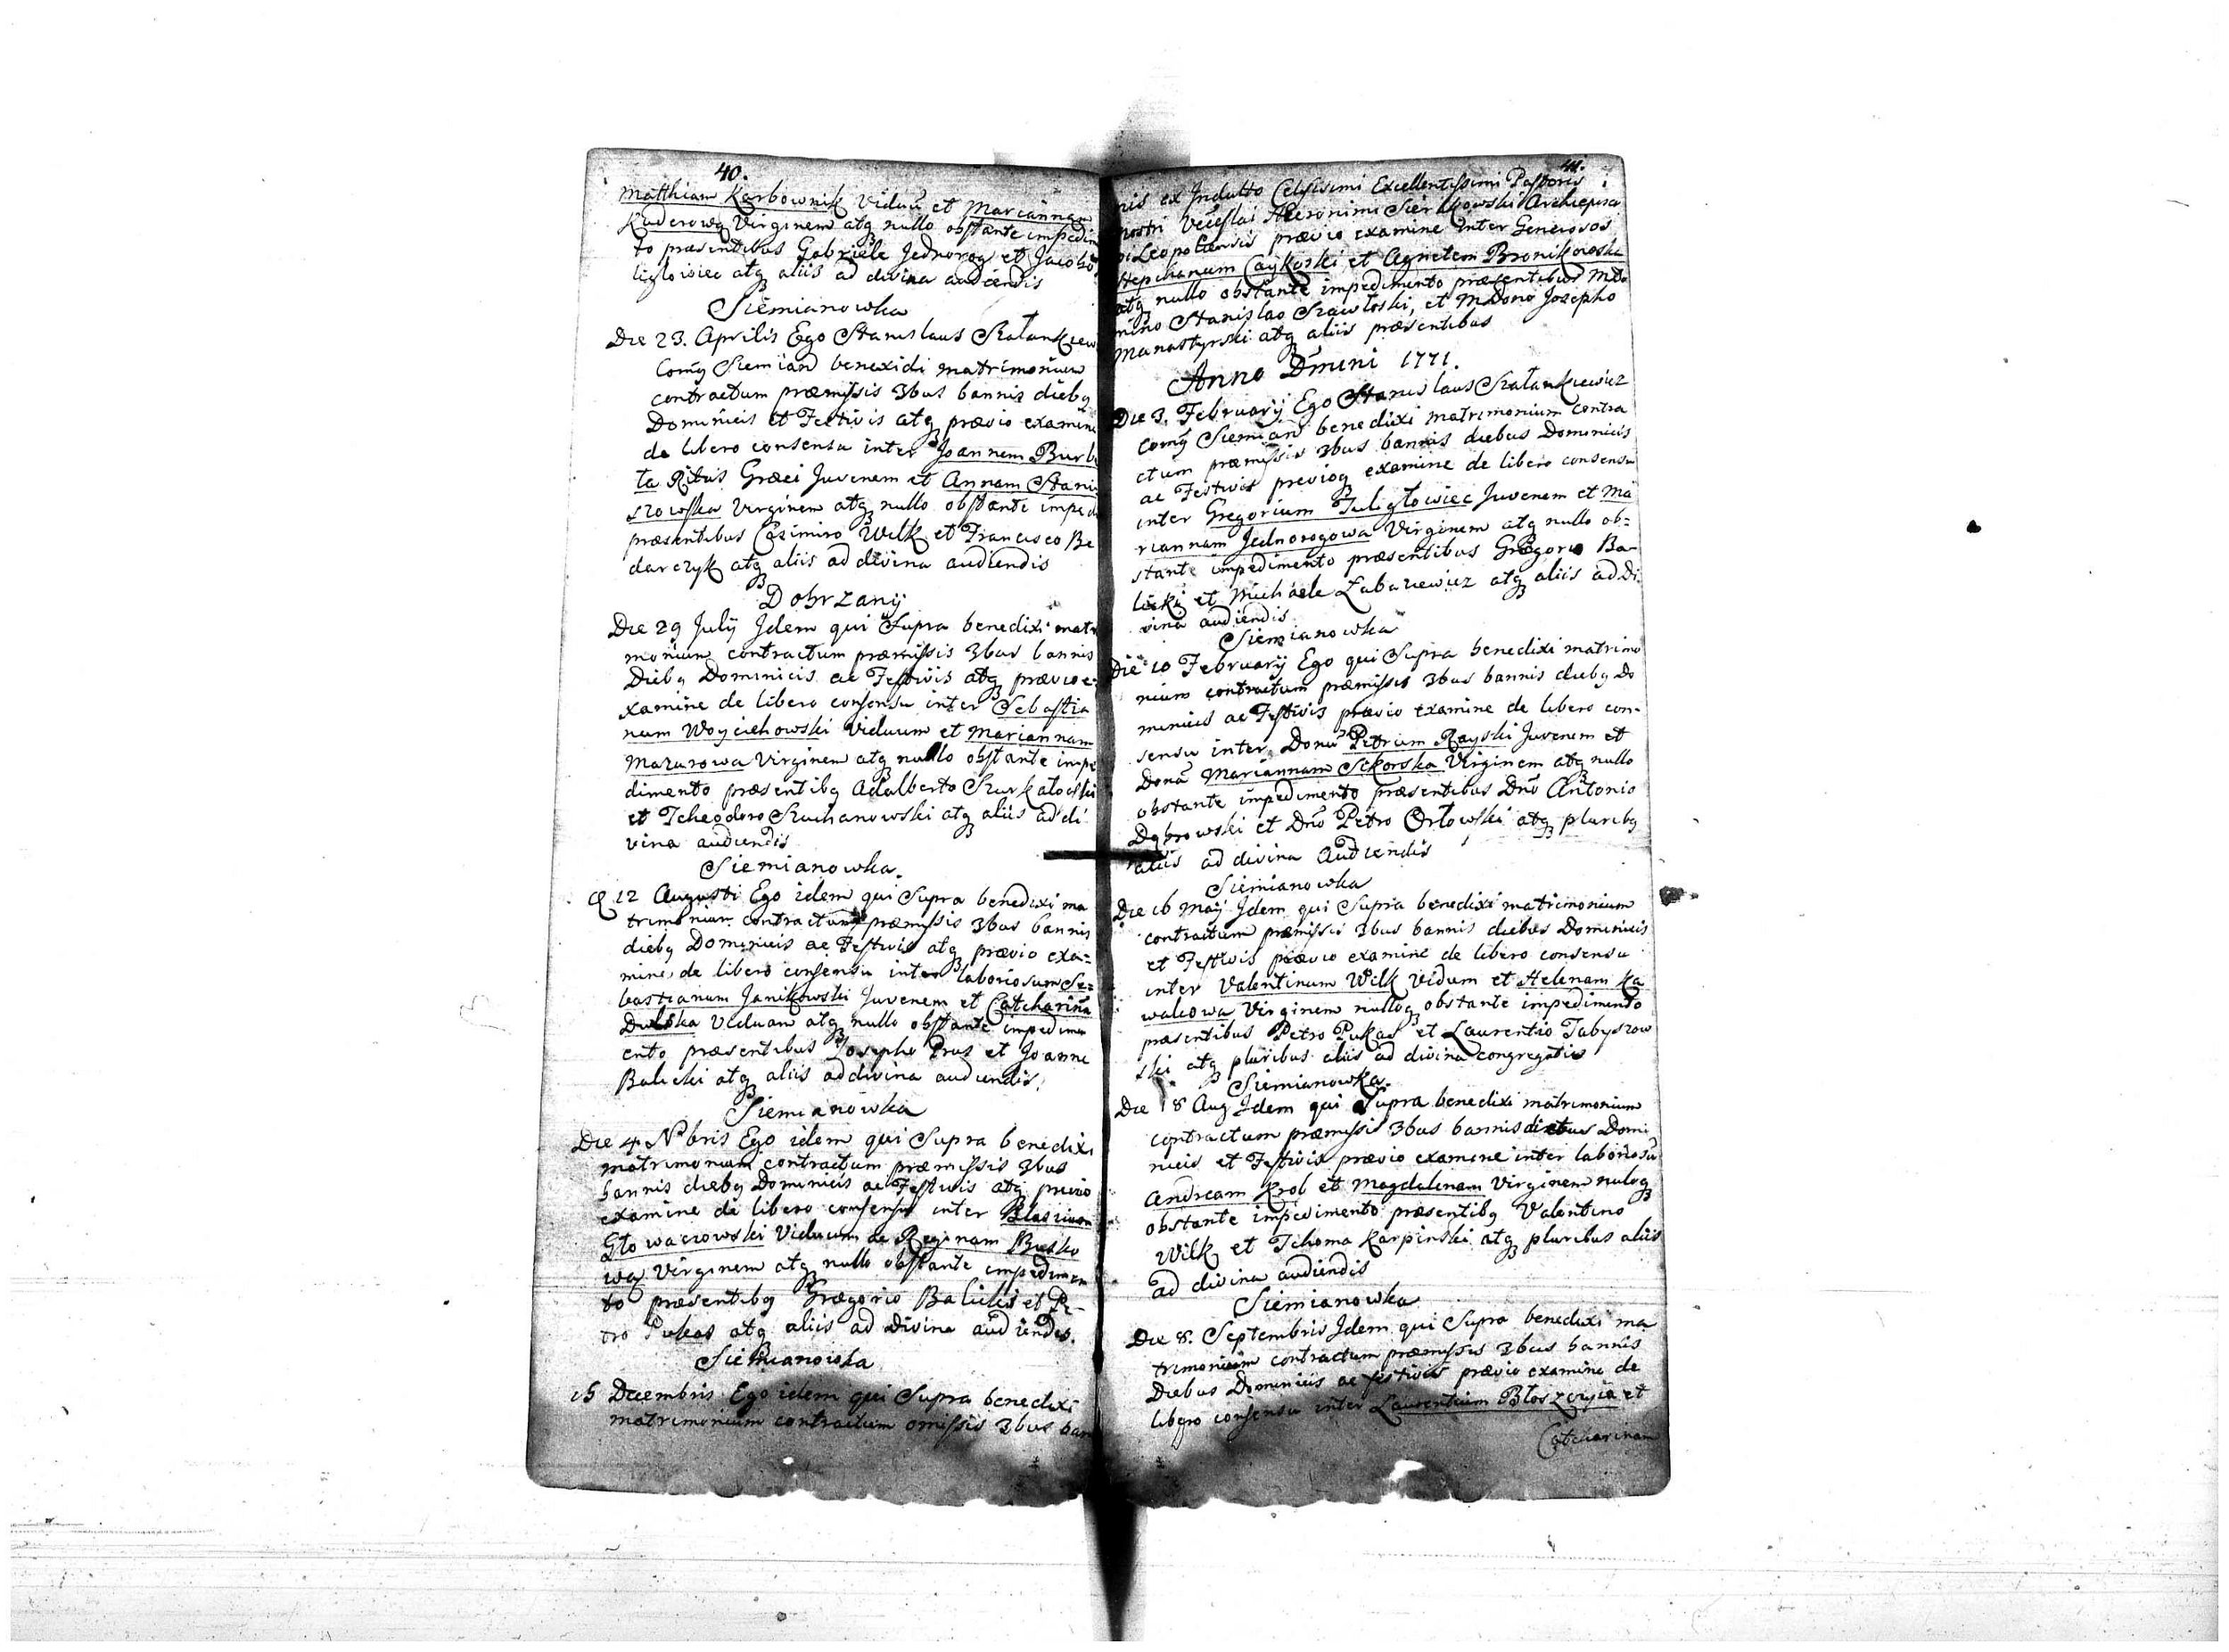 40.
Matthiam Karbownik Viduũ et Mariannam
Kuderową Virginem atq nullo obstante impedim
to præsentibus Gabriele Jednorog et Jacobo
ligłowiec atq aliis ad divina audiendis
Siemianowka
Die 23. Aprilis Ego Stanislaus Szałankiew
Comg Siemian benexidi matrimonium
contractum præmissis 3bus bannis diebq
Dominicis et Festivis atq prævio examine
de libero consensu inter Joannem Burb
ta Ritus Græci Juvenem et Annam Stani
szowska Virginem atq nullo obstante imped
præsentibus Casimiro Wilk et Francisco Be
darczyk atq aliis ad divina audiendis
Dobrzany
Die 29 July Idem qui Supra benedixi matr
monium contractum præmissis 3bus bannis
Diebq Dominicis ac Festivis atq prævio e-
xamine de libero consensu inter Sebastia
num Woyciehowski Viduum et Mariannam
Mazurowa Virginem atq nullo obstante impe
dimento præsentibq Adalberto Szurkałowski
et Tcheodoro Suchanowski atq aliis ad di
vina audiendis
Siemianowka.
12 Augusti Ego idem qui Supra benedixi ma
trimonium contractum præmissis 3bus bannis
diebq Dominicis ac Festivis atq prævio exa=
mine de libero consensu inter laboriosum Se=
bastianum Janikowski Juvenem et Catcharinã
Dulska Viduam atq nullo obstante impedim
ento præsentibus Josepho Prus et Joanne
Balicki atq aliis ad divina audiendis.
Siemianowka
Die 4 Nbris Ego idem qui Supra benedixi
matrimonium contractum præmissis 3bus
bannis diebq Dominicis ac Festivis atq previo
examine de libero consensu inter Blasium
Głowaczowski Viduum ac Reginam Busko
wą Virginem atq nullo obstante impedimen
to præsentibq Gregorio Balicki et Pe-
tro Pukas atq aliis ad Divina audiendis.
Siemianowka
15 Decembris Ego idem qui Supra benedixi
matrimonium contractum omissis 3bus ban
41.
nis ex Indulto Celsissimi Excellentissimi Pastoris
nostri Venceslai Hieronimi Sierakowski Archiepisco
pi Leopoliensis prævio examine inter Generosos
Stephanum Caykoski et Agnetem Bronikowska
atq nullo obstante impedimento præsentibus MDo
mino Stanislao Szawłoski, et MDono Josepho
Manastyrski atq aliis præsentibus
Anno Dmini 1771.
Die 3. February Ego Stanislaus Szałankiewicz
Comg Siemian benedixi matrimonium contra
ctum præmissis 3bus bannis diebus Dominicis
ac Festivis previoq examine de libero consensu
inter Gregorium Tuligłowiec Juvenem et Ma
riannam Jednorogowa Virginem atq nullo ob=
stante impedimento præsentibus Gregorio Ba-
licki et Michaele Łabaziewicz atq aliis ad Di
vina audiendis
Siemianowka
Die 10 February Ego qui Supra benedixi matrimo
nium contractum præmissis 3bus bannis diebq Do
minicis ac Festivis prævio examine de libero con-
sensu inter Donũ Petrum Rayski Juvenem et
Donã Mariannam Sikorska Virginem atq nullo
obstante impedimento præsentibus Dnõ Antonio
Dąbrowski et Dnõ Petro Orłowski atq pluribq
aliis ad divina Audiendis
Siemianowka
Die 16 Maij Idem qui Supra benedixi matrimonium
contractum præmissis 3bus bannis diebus Dominicis
et Festivis prævio examine de libero consensu
inter Valentinum Wilk Vidum et Helenam Ka
walcowa Virginem nulloq obstante impedimento
præsentibus Petro Pukas et Laurentio Tabyszow
ski atq pluribus aliis ad divina congregatis
Siemianowka.
Die 18 Aug Idem qui Supra benedixi matrimonium
contractum præmissis 3bus bannis diebus Domi
nicis et Festivis prævio examine inter laboriosũ
Andream Krol et Magdalenam Virginem nuloq
obstante impedimento præsentibq Valentino
Wilk et Tchoma Karpinski atq pluribus aliis
ad divina audiendis
Siemianowka
Die 8. Septembris Idem qui Supra benedixi ma
trimonium contractum præmissis 3bus bannis
Diebus Dominicis ac festivis prævio examine de
libero consensu inter Laurentium Błoszczyca et
Catcharinam